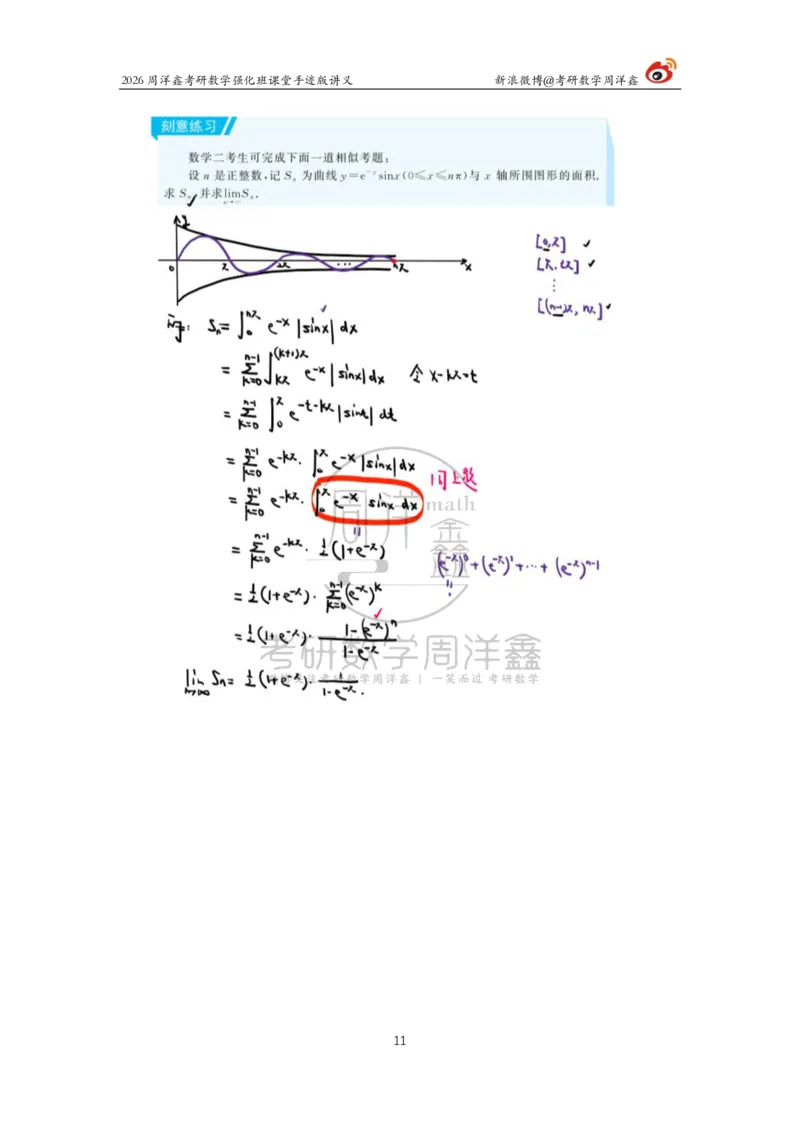 2026 周洋鑫考研数学强化班课堂手迹版讲义 新浪微博@考研数学周洋鑫
刻意练习
数学二考生可完成下面一道相似考题：
设 n 是正整数,记 Sₙ 为曲线 y=e⁻ˣsinx(0≤x≤nπ)与 x 轴所围图形的面积.
求 Sₙ,并求limSₙ.
n→∞
y
0 π 2π ... nπ x
[0,π] ✓
[π,2π] ✓
⋮
[(n-1)π, nπ] ✓
解: Sₙ= ∫₀^{nπ} e^{-x} |sinx| dx
= Σ_{k=0}^{n-1} ∫_{kπ}^{(k+1)π} e^{-x} |sinx| dx 令 x-kπ=t
= Σ_{k=0}^{n-1} ∫₀^π e^{-t-kπ} |sint| dt
= Σ_{k=0}^{n-1} e^{-kπ} · ∫₀^π e^{-x} |sinx| dx
= Σ_{k=0}^{n-1} e^{-kπ} · ∫₀^π e^{-x} sinx dx 同上题
= Σ_{k=0}^{n-1} e^{-kπ} · ½(1+e^{-π}) (e^{-π})⁰+(e^{-π})¹+⋯+(e^{-π})^{n-1}
= ½(1+e^{-π}) · Σ_{k=0}^{n-1} (e^{-π})^k
= ½(1+e^{-π}) · \frac{1-(e^{-π})^n}{1-e^{-π}}
lim_{n→∞} Sₙ= ½(1+e^{-π}) · \frac{1}{1-e^{-π}}.
周洋 math
鑫
考研数学周洋鑫
考研数学周洋鑫 | 一笑而过 考研数学
11